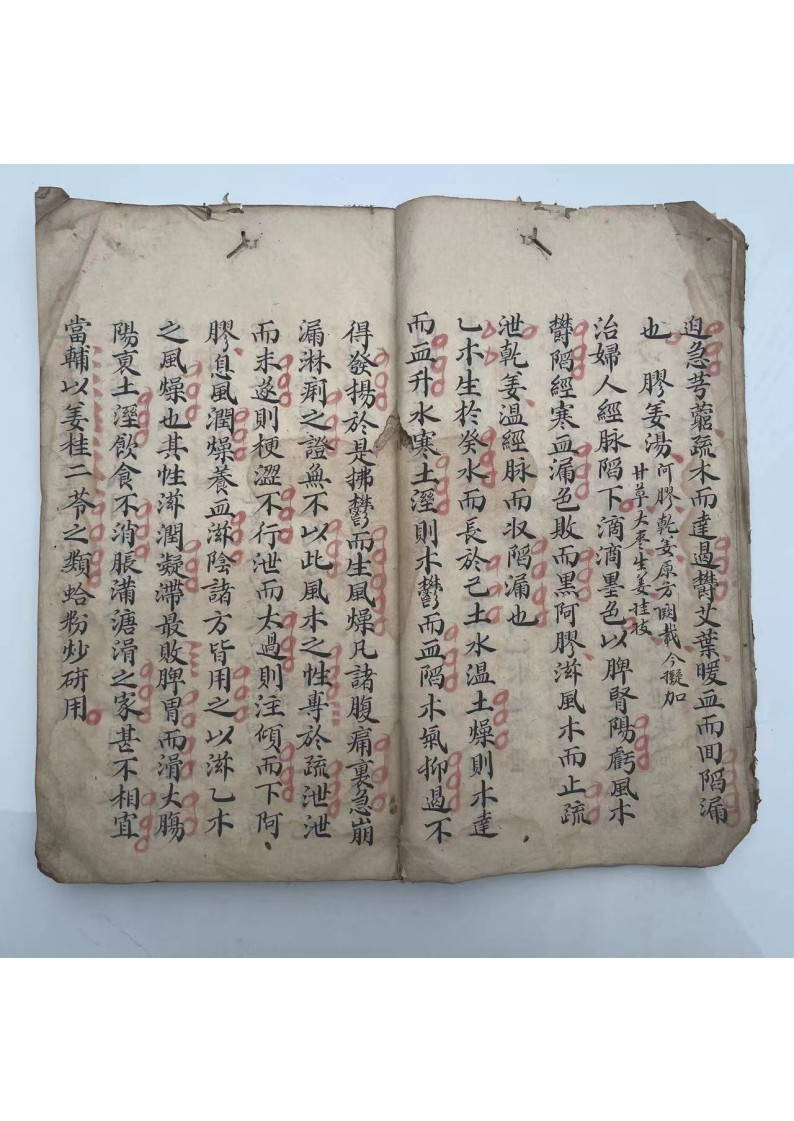 迫急芎藭疏木而達遏欝艾葉暖血而回陷漏
也　膠姜湯
阿膠乾姜原方闕載今擬加
甘草大枣生姜桂枝
治婦人經脉陷下滴滴墨色以脾腎陽虧風木
欝陷經寒血漏色敗而黑阿膠滋風木而止疏
泄乾姜温經脉而収陷漏也
乙木生於癸水而長於己土水温土燥則木達
而血升水寒土溼則木鬱而血陷木氣抑遏不
得發揚於是拂鬱而生風燥凡諸腹痛裏急崩
漏淋痢之證無不以此風木之性專於疏泄泄
而未遂則梗澀不行泄而太過則注傾而下阿
膠息風潤燥養血滋陰諸方皆用之以滋乙木
之風燥也其性滋潤凝滯最敗脾胃而滑大膓
陽衰土溼飲食不消脹滿溏滑之家甚不相宜
當輔以姜桂二苓之類蛤粉炒研用